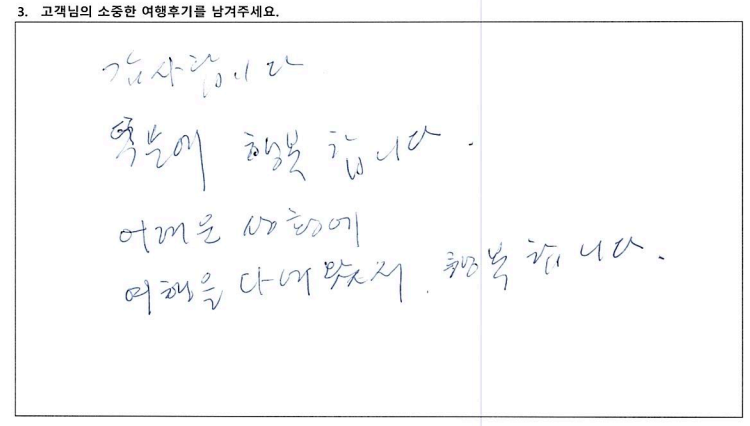 3. 고객님의 소중한 여행후기를 남겨주세요.
감사합니다
덕분에 행복합니다.
어려운 상황에
여행을 다녀와서. 행복합니다.